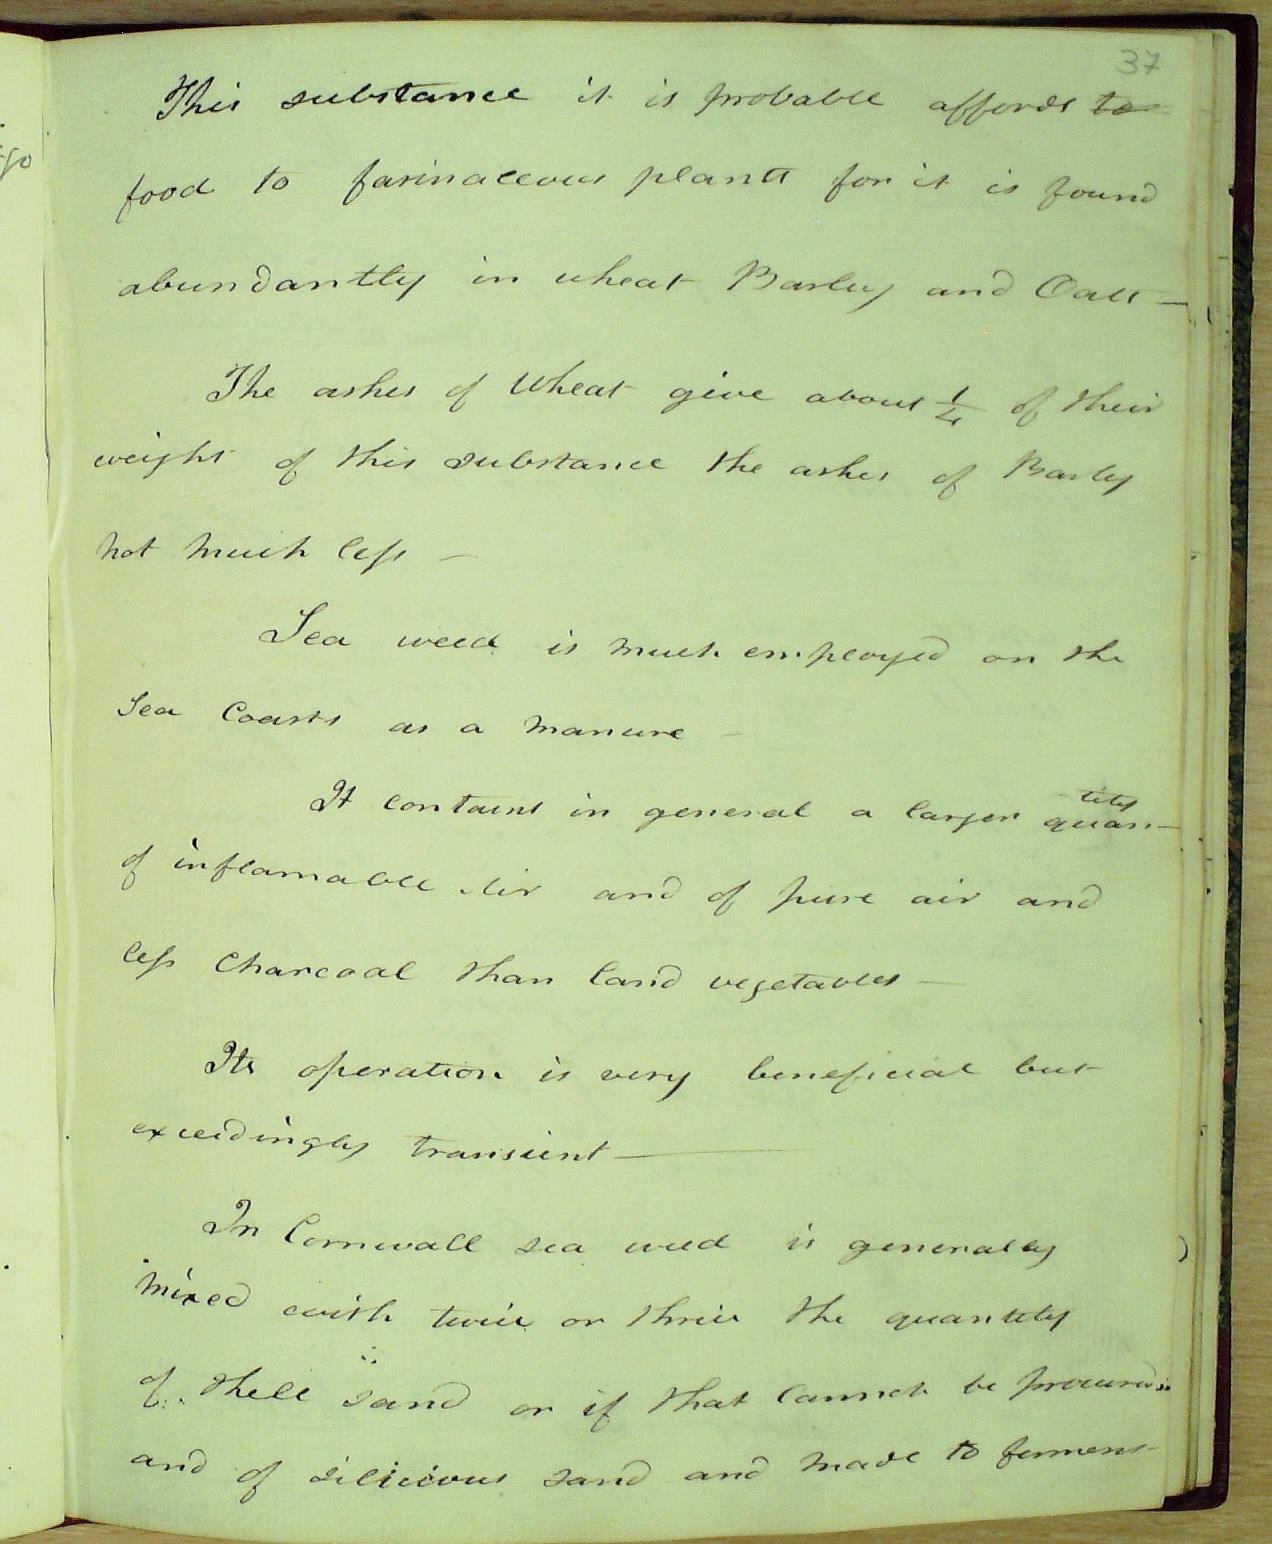 37
This substance it is probable affords to
food to farinaceous plants for it is found
abundantly in wheat Barley and Oats —
The ashes of Wheat give about 1/4 of their
weight of this substance the ashes of Barley
not much less —
Sea weed is much employed on the
Sea Coasts as a manure —
It contains in general a larger quantity
of inflamable Air and of pure air and
less Charcoal than land vegetables —
Its operation is very beneficial but
exceedingly transient —
In Cornwall sea weed is generally
mixed with twice or thrice the quantity
of shell sand or if that cannot be procured
and of silicious sand and made to ferment